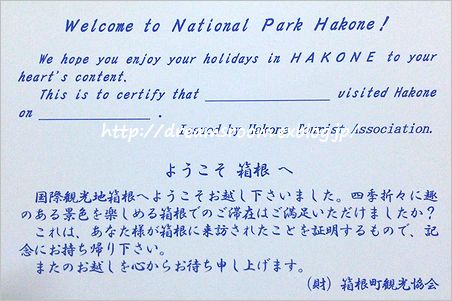 Welcome to National Park Hakone!
We hope you enjoy your holidays in HAKONE to your
heart's content.
This is to certify that ____________ visited Hakone
on ____________ .
Issued by Hakone Tourist Association.
ようこそ 箱根 へ
国際観光地箱根へようこそお越し下さいました。四季折々に趣
のある景色を楽しめる箱根でのご滞在はご満足いただけましたか?
これは、あなた様が箱根に来訪されたことを証明するもので、記
念にお持ち帰り下さい。
またのお越しを心からお待ち申し上げます。
(財) 箱根町観光協会